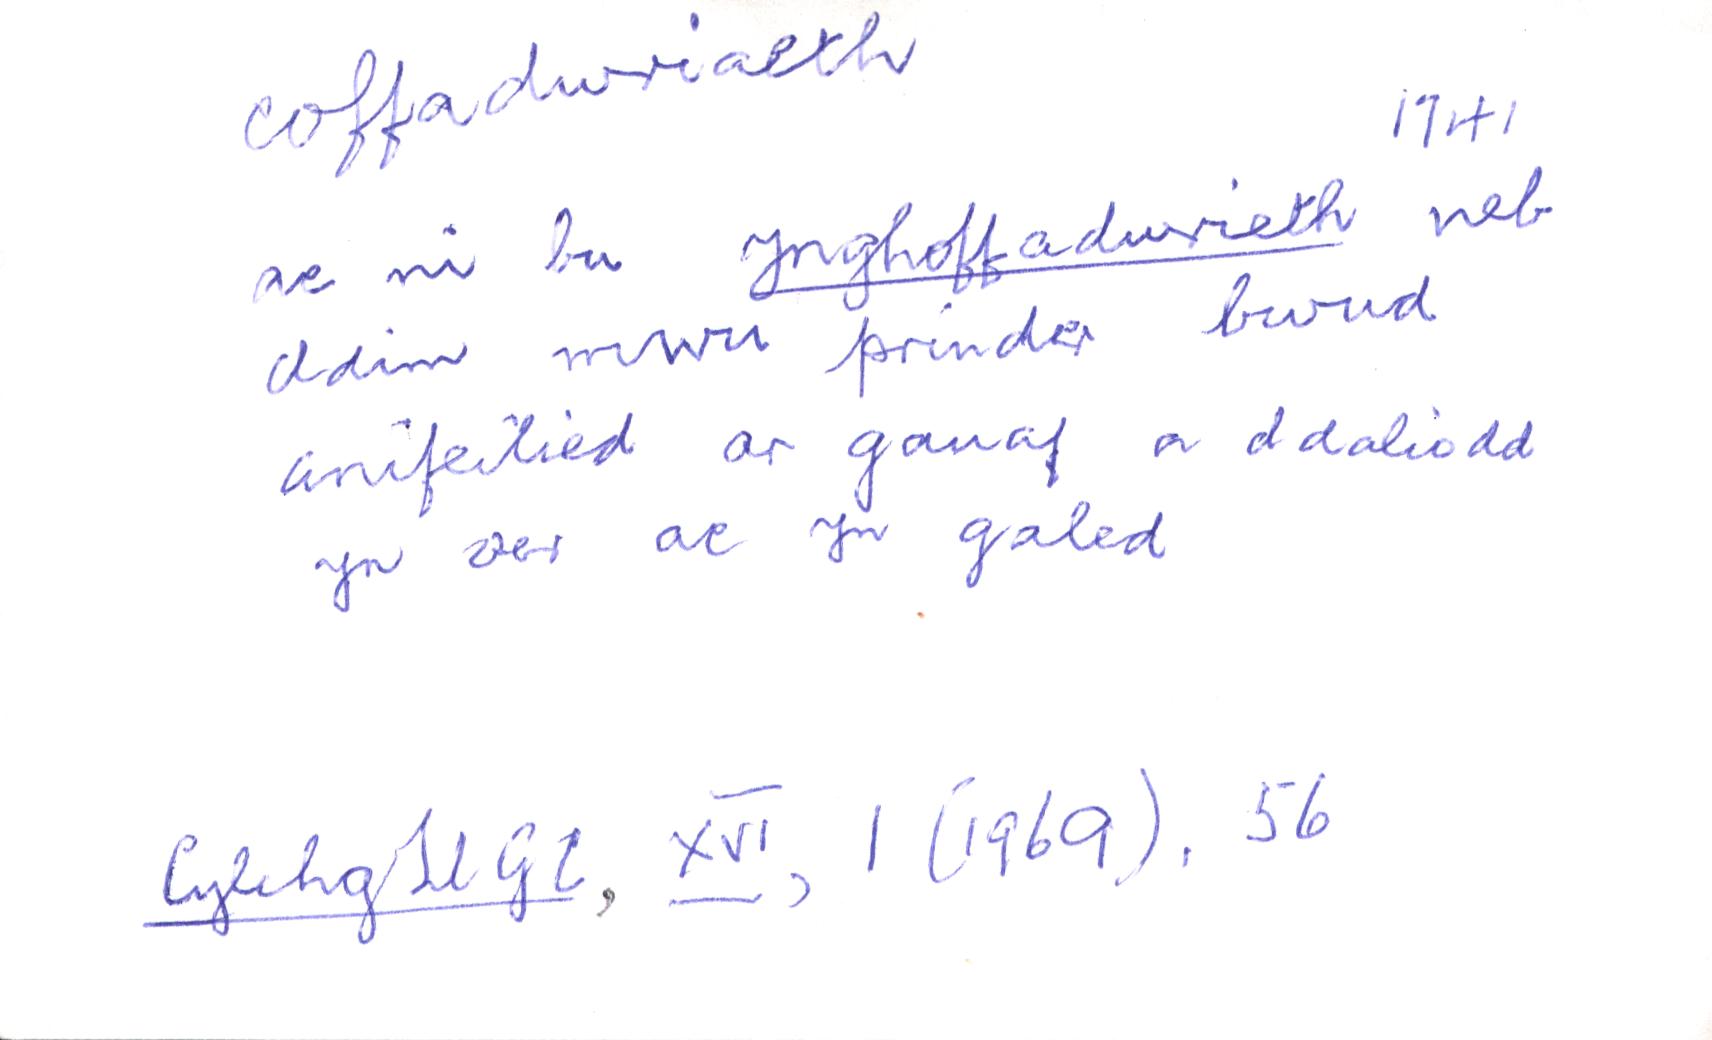 coffadwriaeth
1741
ac ni bu ynghoffadwrieth neb
ddim mwu prinder bwud
anifeilied ar gauaf a ddaliodd
yn oer ac yn galed
CylchgLlGC, XVI, 1 (1969), 56